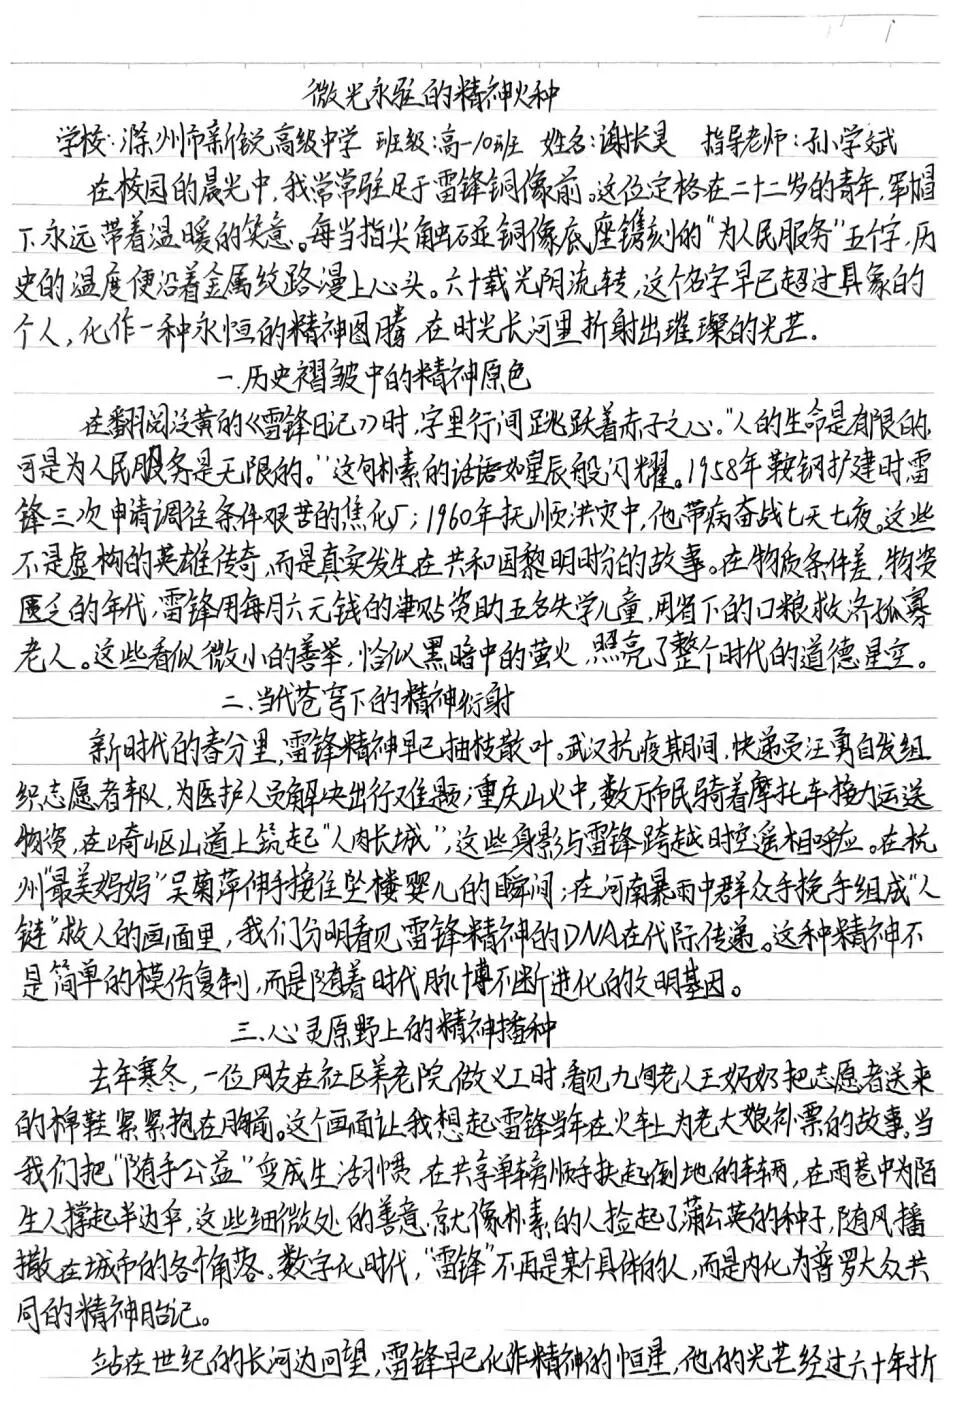 微光永驻的精神火种
学校:滁州市新锐高级中学 班级:高一10班 姓名:谢长灵 指导老师:孙学斌
在校园的晨光中,我常常驻足于雷锋铜像前。这位定格在二十二岁的青年,军帽
下永远带着温暖的笑意。每当指尖触碰铜像底座镌刻的“为人民服务”五个字,历
史的温度便沿着金属纹路漫上心头。六十载光阴流转,这个名字早已超过具象的
个人,化作一种永恒的精神图腾,在时光长河里折射出璀璨的光芒。
一.历史褶皱中的精神原色
在翻阅泛黄的《雷锋日记》时,字里行间跳跃着赤子之心。“人的生命是有限的,
可是为人民服务是无限的。”这句朴素的话语如星辰般闪耀。1958年鞍钢扩建时,雷
锋三次申请调往条件艰苦的焦化厂;1960年抚顺洪灾中,他带病奋战七天七夜。这些
不是虚构的英雄传奇,而是真实发生在共和国黎明时分的故事。在物质条件差,物资
匮乏的年代,雷锋用每月六元钱的津贴资助五名失学儿童,用省下的口粮救济孤寡
老人。这些看似微小的善举,恰似黑暗中的萤火,照亮了整个时代的道德星空。
二.当代苍穹下的精神衍射
新时代的春分里,雷锋精神早已抽枝散叶。武汉抗疫期间,快递员汪勇自发组
织志愿者车队,为医护人员解决出行难题;重庆山火中,数万市民骑着摩托车接力运送
物资,在崎岖山道上筑起“人肉长城”,这些身影与雷锋跨越时空遥相呼应。在杭
州“最美妈妈”吴菊萍伸手接住坠楼婴儿的瞬间;在河南暴雨中群众手挽手组成“人
链”救人的画面里,我们分明看见雷锋精神的DNA在代际传递。这种精神不
是简单的模仿复制,而是随着时代脉博不断进化的文明基因。
三.心灵原野上的精神播种
去年寒冬,一位网友在社区养老院做义工时,看见九旬老人王奶奶把志愿者送来
的棉鞋紧紧抱在胸前。这个画面让我想起雷锋当年在火车上为老大娘补票的故事。当
我们把“随手公益”变成生活习惯,在共享单车旁顺手扶起倒地的车辆,在雨巷中为陌
生人撑起半边伞,这些细微处的善意,就像朴素的人捡起了蒲公英的种子,随风播
撒在城市的各个角落。数字化时代,“雷锋”不再是某个具体的人,而是内化为普罗大众共
同的精神胎记。
站在世纪的长河边回望,雷锋早已化作精神的恒星,他的光芒经过六十年折